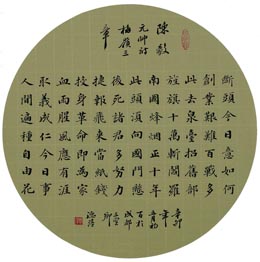 陳毅
元帥詩
梅嶺三
章
斷頭今日意如何
創業艱難百戰多
此去泉臺招舊部
旌旗十萬斬閻羅
南國烽煙正十年
此頭須向國門懸
後死諸君多努力
捷報飛來當紙錢
投身革命即為家
血雨腥風應有涯
取義成仁今日事
人間遍種自由花
辛卯
年
成都